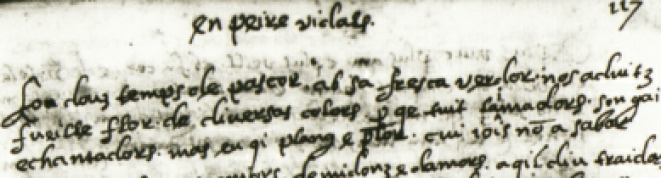 en peire vidals.
117
Lou douz temps de pascor. ab sa fresca verdor. nos aduitz
fueille flor. de diversas colors. p qe tuit l'amadors. son gai
e chantadors. mas eu qi plang e plor. cui iois nō a sabor
de midonz e damors. aqil